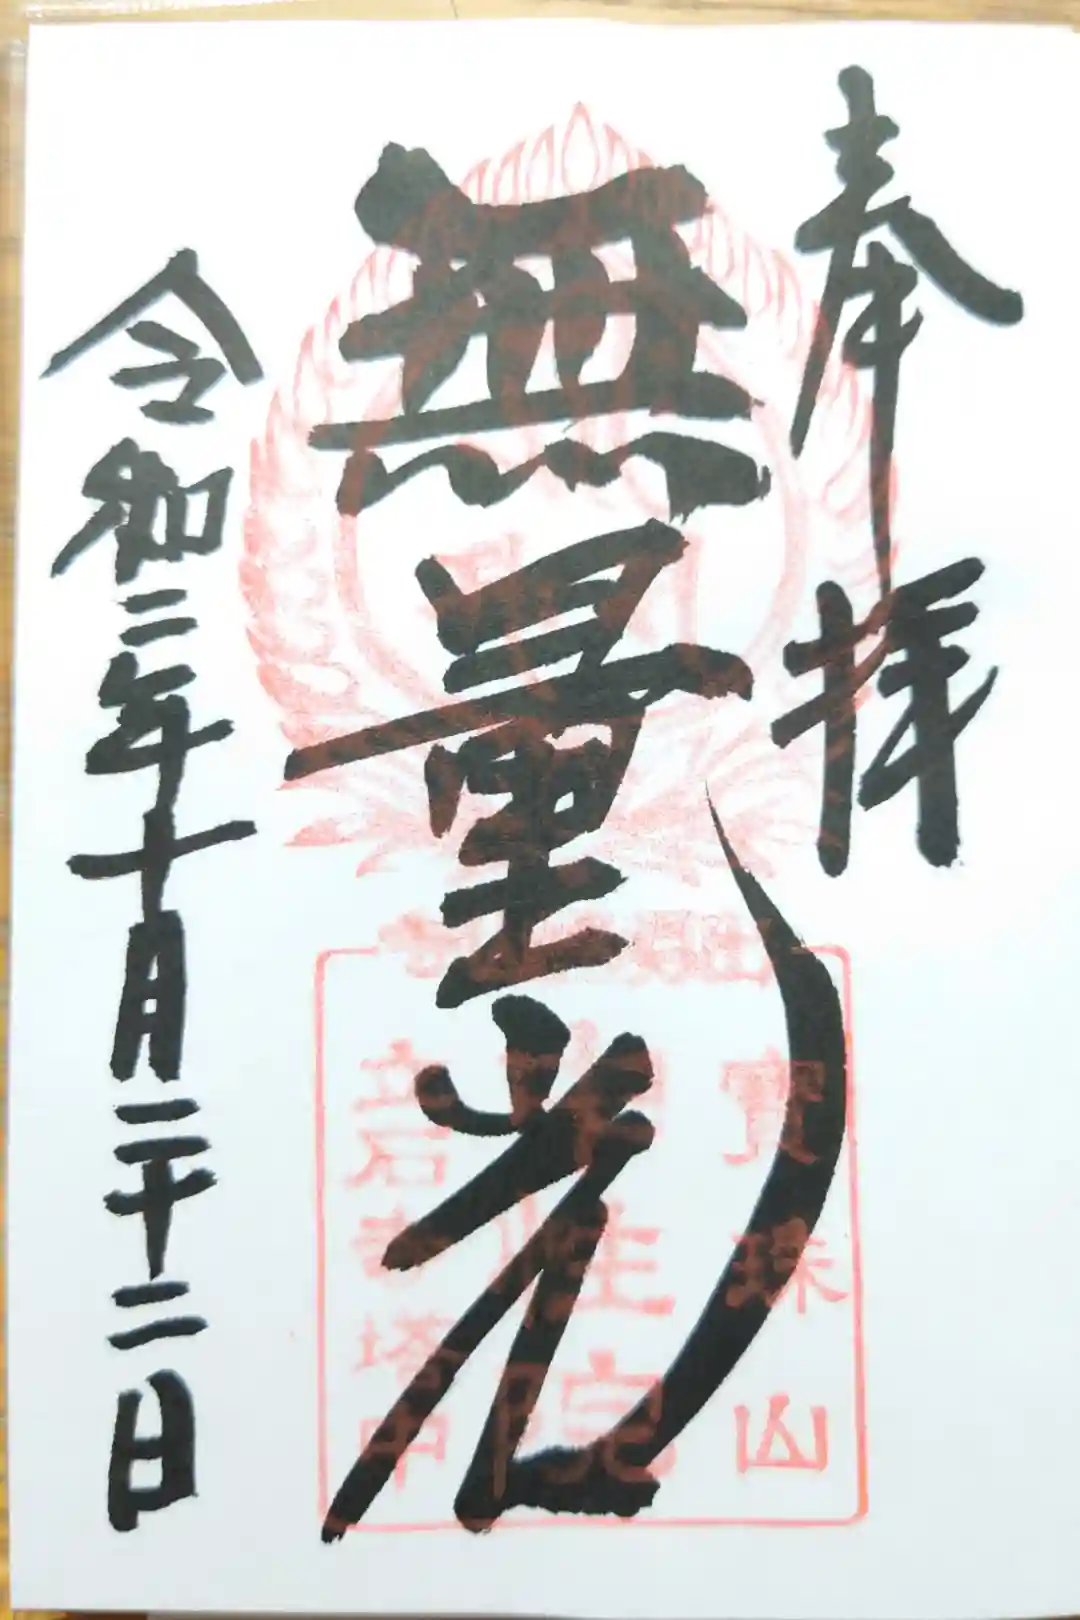 奉拝
無量光
令和二年十月二十二日
寶珠山
性院
立石寺塔中